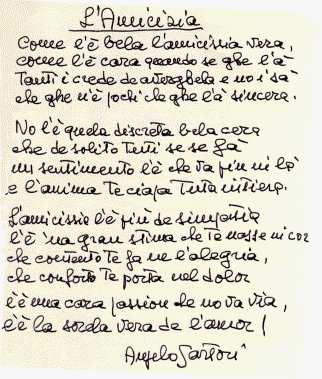 L'Amicissia
Come l'è bela l'amicissia vera,
come l'è cara quando se ghe l'à
Tanti i crede de averghela e no i sà
che ghe n'è pochi che ghe l'à sincera.
No l'è quela discreta bela cera
che de solito Tuti se se fà
un sentimento l'è che va più in là
e l'anima Te ciapa Tuta intiera.
L'amicissia l'è più de simpatia
l'è 'na gran stima che te nasse in cor
che contento Te fa ne l'alegria,
che conforto Te porta nel dolor
l'è una cara passion che no va via,
l'è la sorela vera de l'amor!
Angelo Sartori